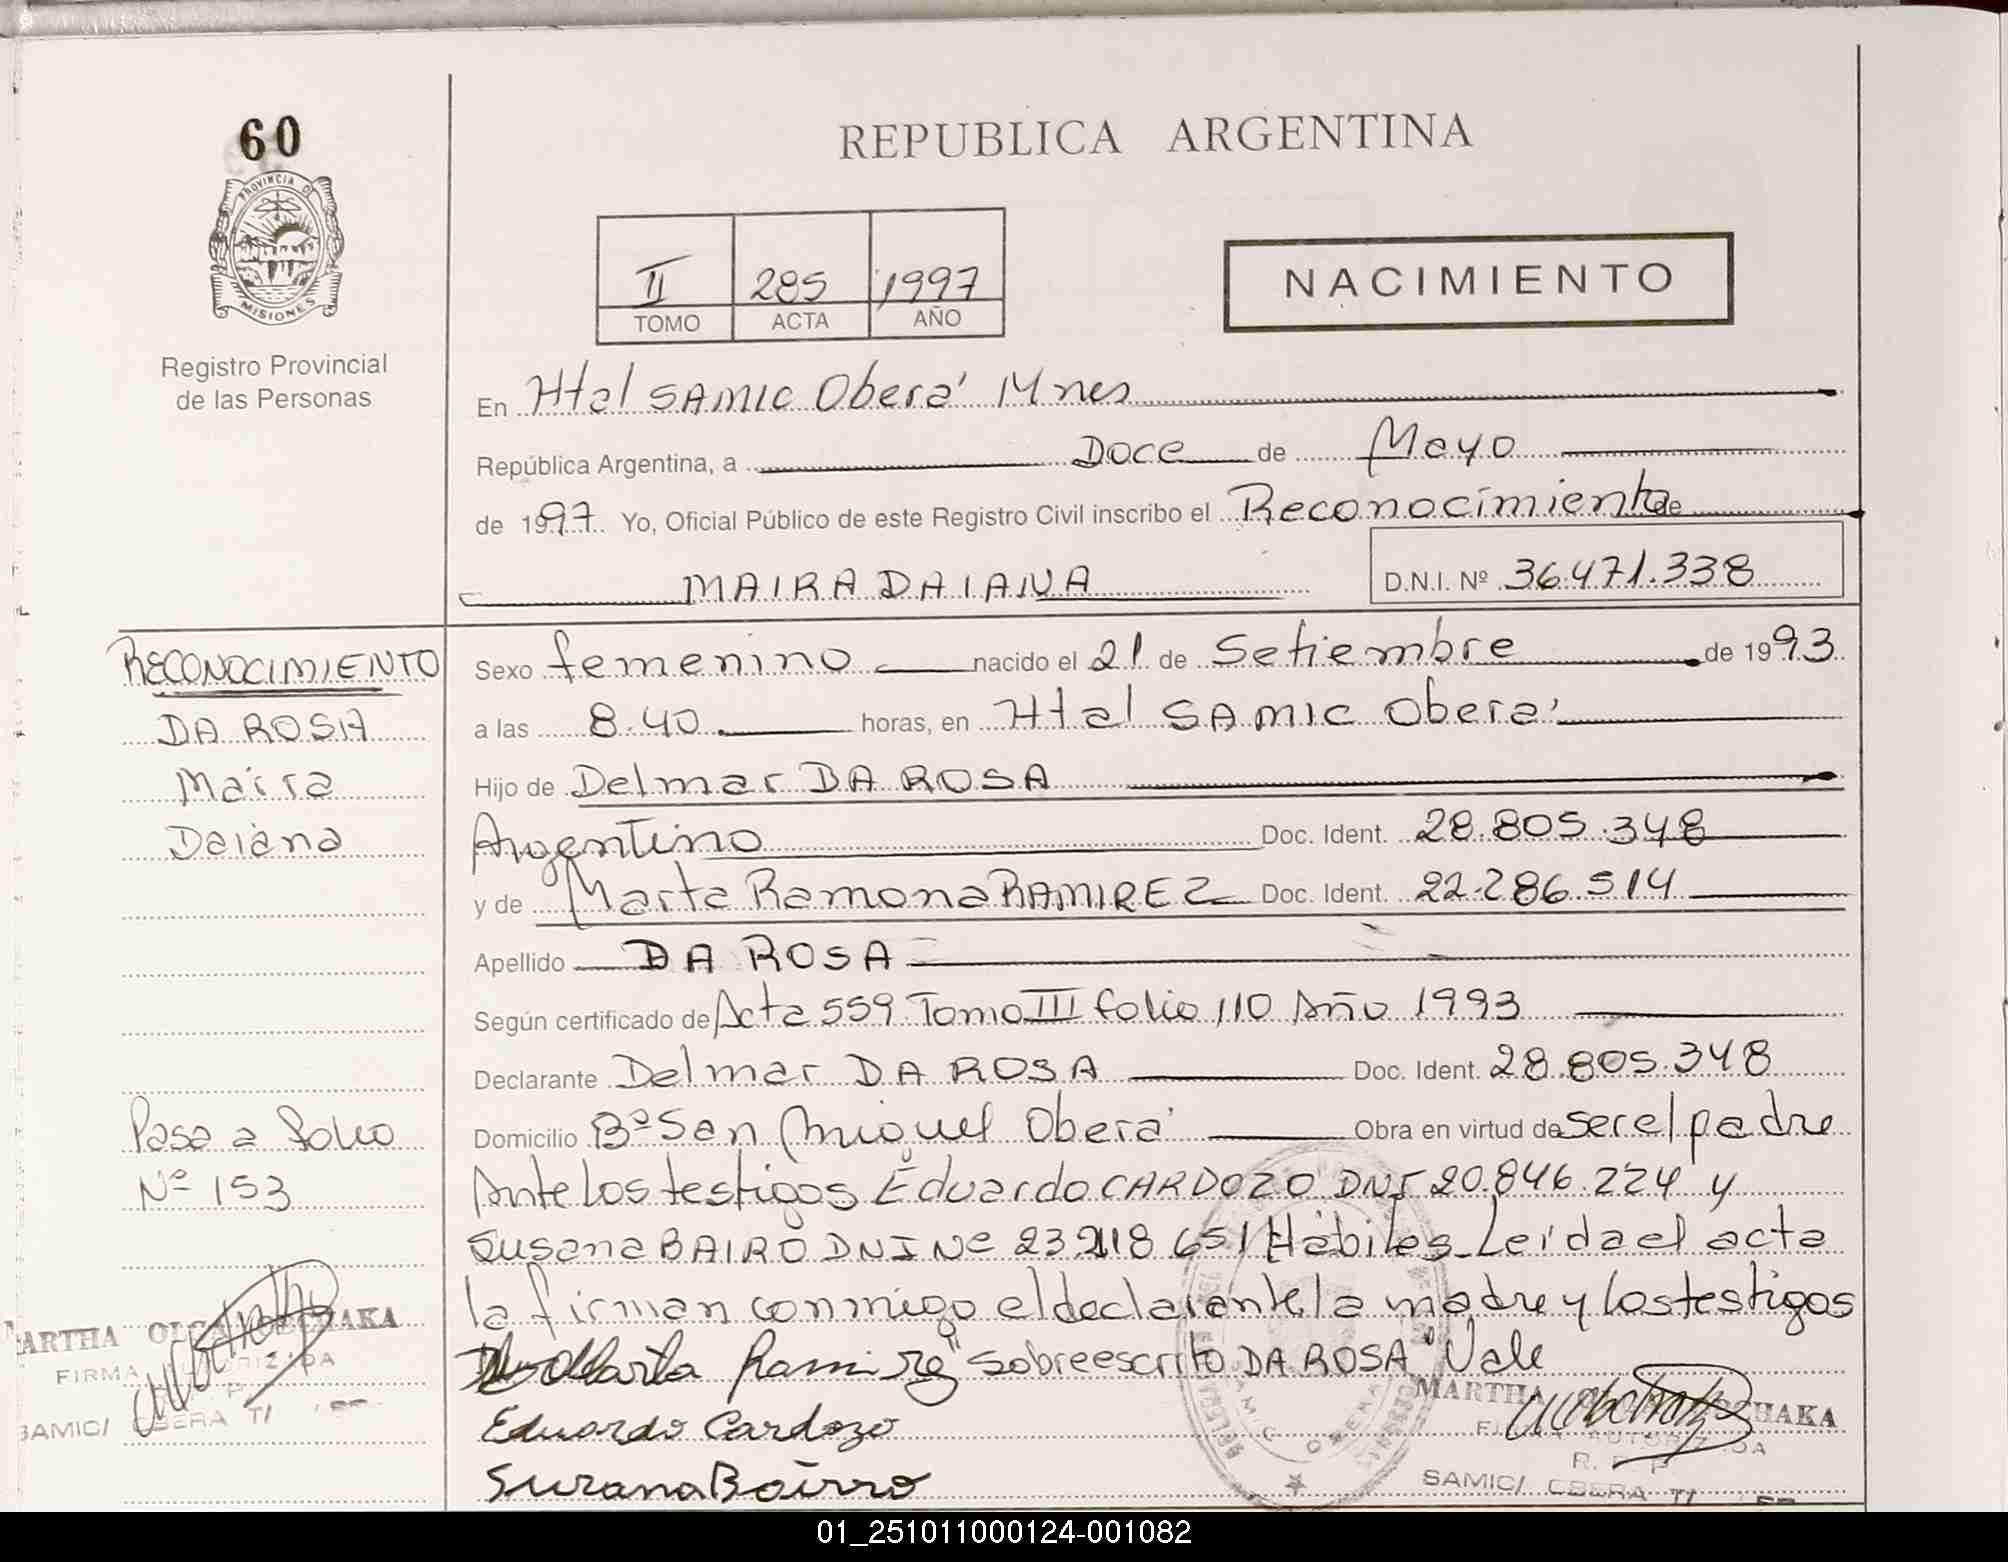 60
PROVINCIA DE
MISIONES
Registro Provincial
de las Personas
REPUBLICA ARGENTINA
II 285 1997
TOMO ACTA AÑO
NACIMIENTO
En Htal SAMIC Oberá Mnes
República Argentina, a Doce de Mayo
de 1997. Yo, Oficial Público de este Registro Civil inscribo el Reconocimiento de
MAIRA DAIANA
D.N.I. Nº 36.471.338
RECONOCIMIENTO
DA ROSA
Maira
Daiana
Pasa a folio
Nº 153
Sexo femenino nacido el 21 de Setiembre de 1993
a las 8.40 horas, en Htal SAMIC Oberá
Hijo de Delmar DA ROSA
Argentino Doc. Ident. 28.805.348
y de Marta Ramona RAMIREZ Doc. Ident. 22.286.514
Apellido DA ROSA
Según certificado de Acta 559 Tomo III folio 110 Año 1993
Declarante Delmar DA ROSA Doc. Ident. 28.805.348
Domicilio Bº San Miguel Oberá Obra en virtud de ser el padre
Ante los testigos Eduardo CARDOZO DNI 20.846.224 y
Susana BAIRO DNI Nº 23 218 651 Hábiles Leída el acta
la firman conmigo el declarante la madre y los testigos
Marta Ramirez "Sobreescrito DA ROSA" Vale
Eduardo Cardozo
Suzana Bairro
MARTHA
FIRMA AUTORIZADA
SAMIC/ OBERA
MARTHA
FIRMA AUTORIZADA
R. P. P
SAMIC/ OBERA
01_251011000124-001082